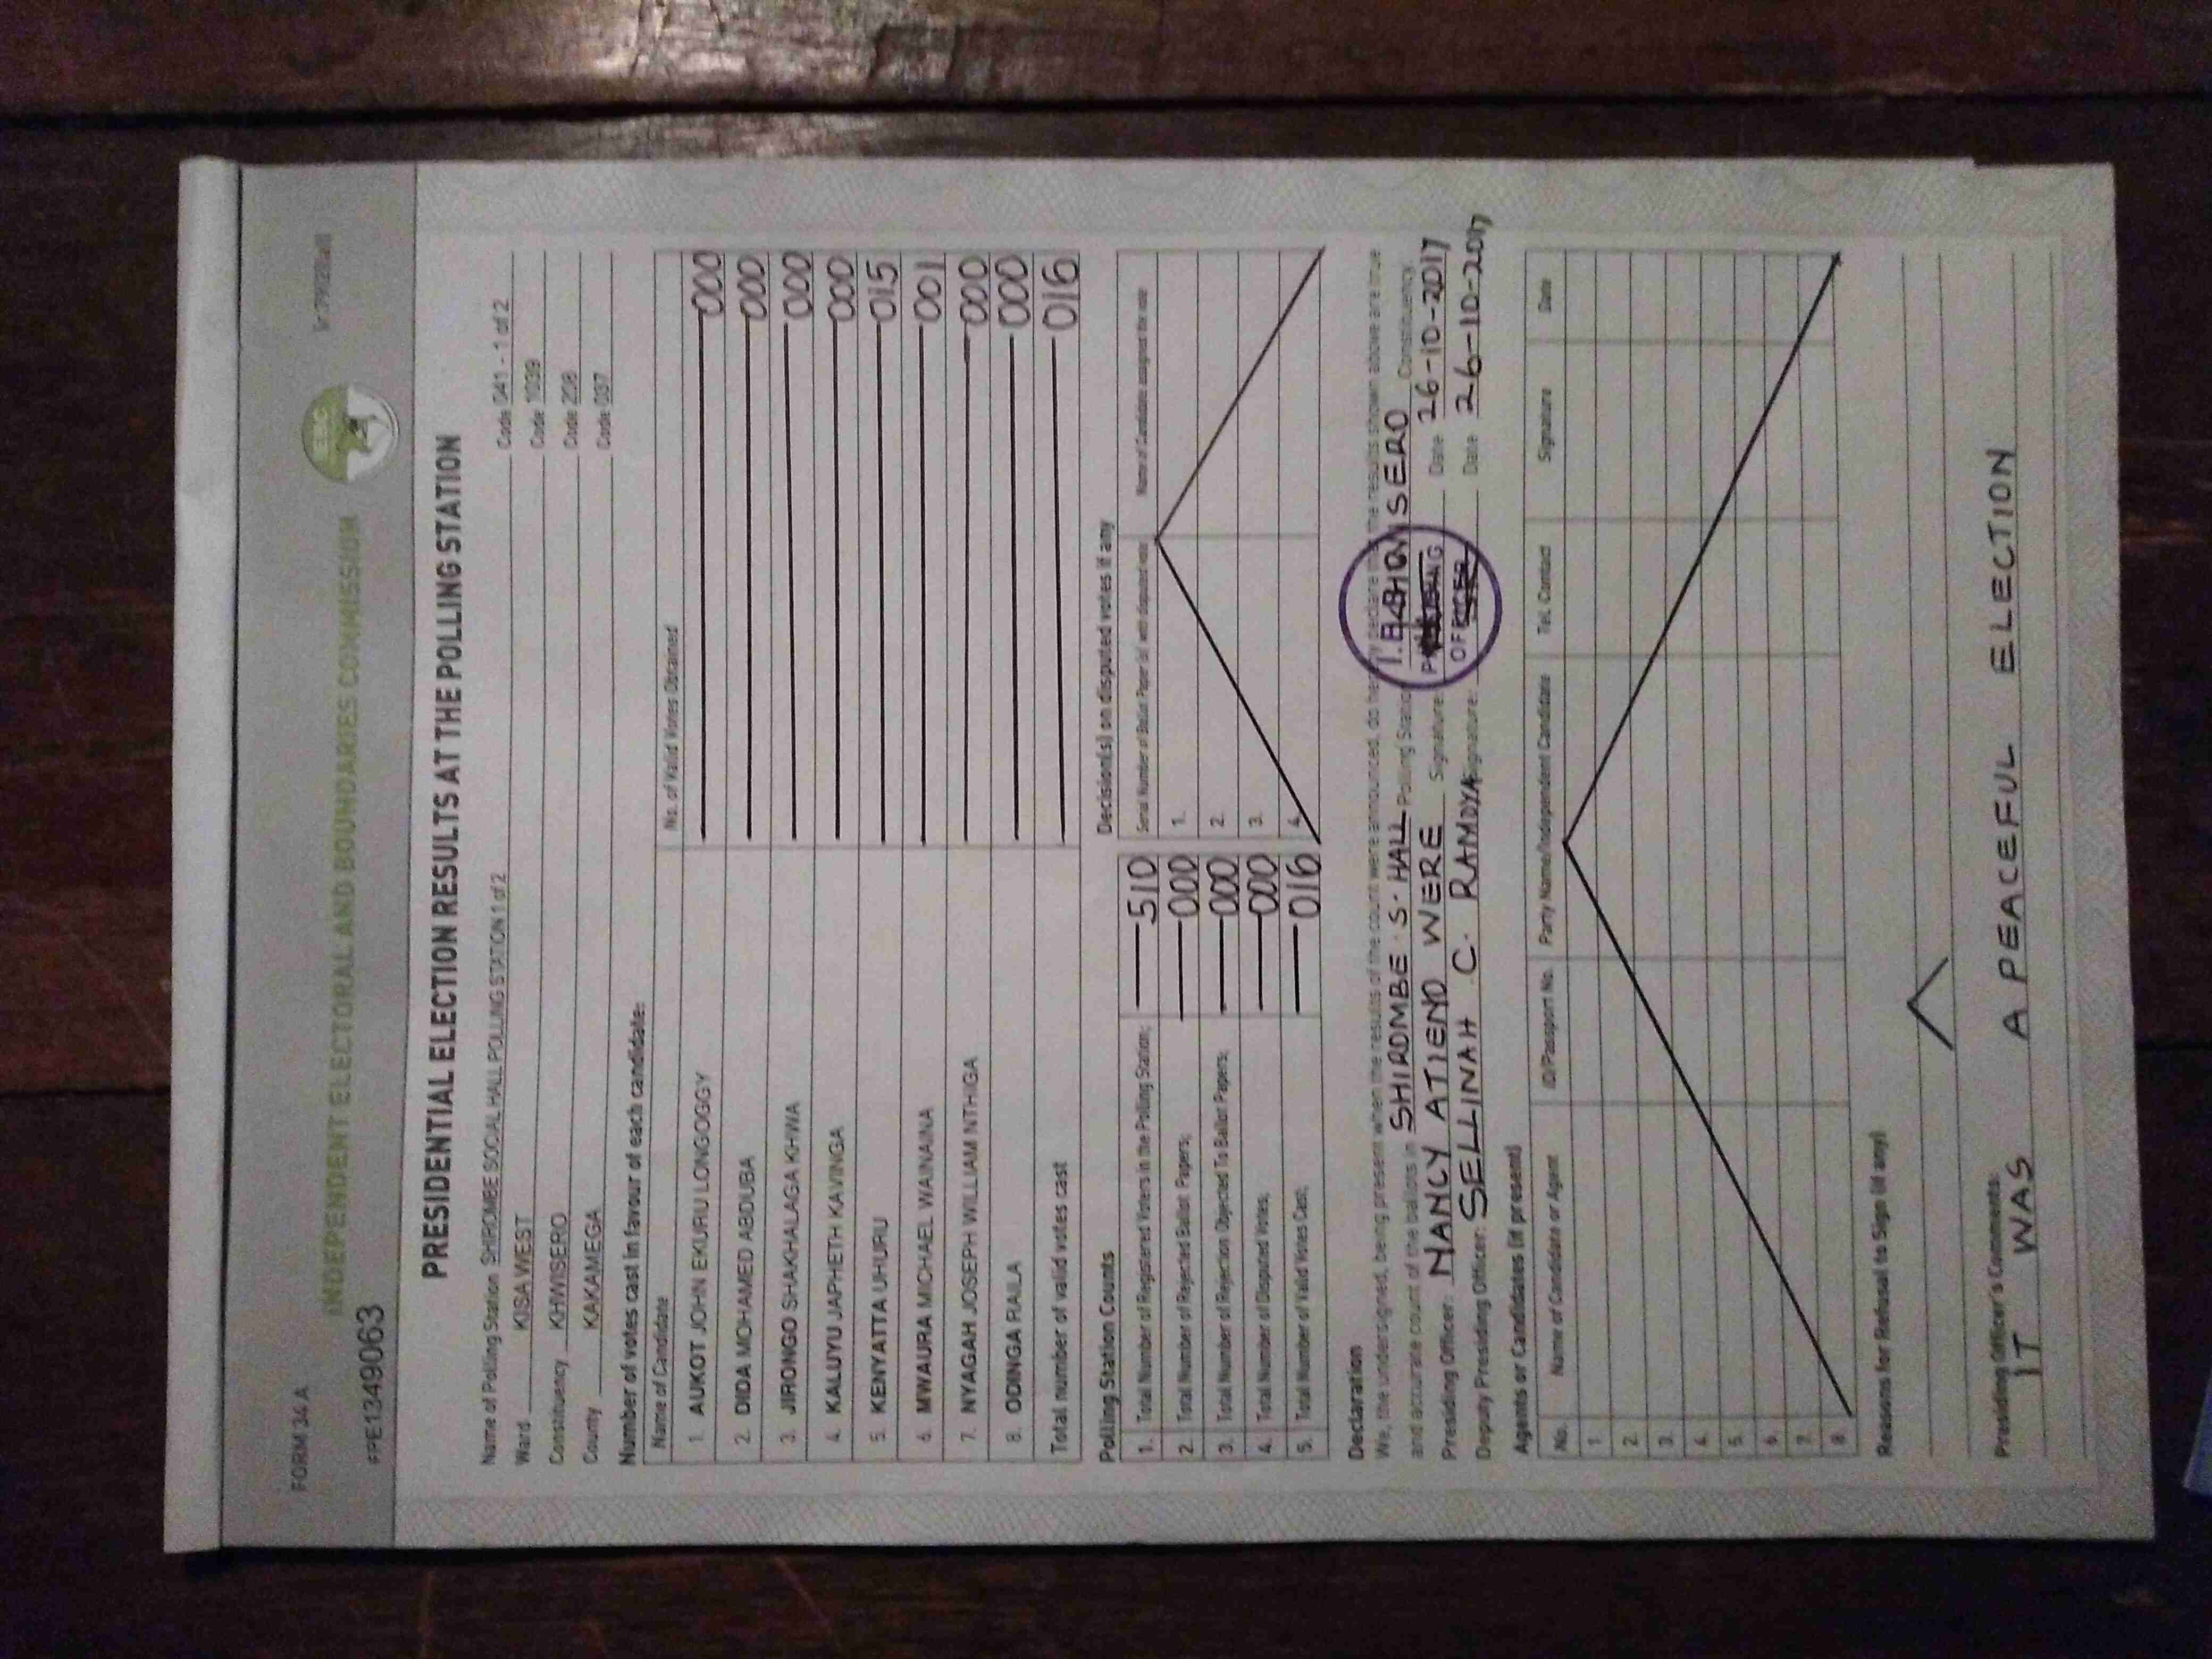 FORM 34 A
INDEPENDENT ELECTORAL AND BOUNDARIES COMMISSION
FPE13490063
IEBC
PRESIDENTIAL ELECTION RESULTS AT THE POLLING STATION
Name of Polling Station SHIROMBE SOCIAL HALL POLLING STATION 1 of 2 Code 041 - 1 of 2
Ward KISA WEST Code 1039
Constituency KHWISERO Code 208
County KAKAMEGA Code 037
Number of votes cast in favour of each candidate:
Name of Candidate No. of Valid Votes Obtained
1. AUKOT JOHN EKURU LONGOGGY 000
2. DIDA MOHAMED ABDUBA 000
3. JIRONGO SHAKHALAGA KHWA 000
4. KALUYU JAPHETH KAVINGA 000
5. KENYATTA UHURU 015
6. MWAURA MICHAEL WAINAINA 001
7. NYAGAH JOSEPH WILLIAM NTHIGA 000
8. ODINGA RAILA 000
Total number of valid votes cast 016
Polling Station Counts
1. Total Number of Registered Voters in the Polling Station; 510
2. Total Number of Rejected Ballot Papers; 000
3. Total Number of Rejection Objected To Ballot Papers; 000
4. Total Number of Disputed Votes; 000
5. Total Number of Valid Votes Cast; 016
Decision(s) on disputed votes if any
Serial Number of Ballot Paper (s) with disputed vote Name of Candidate assigned the vote
1.
2.
3.
4.
Declaration
We, the undersigned, being present when the results of the count were announced, do hereby declare that the results shown above are true
and accurate count of the ballots in SHIROMBE S. HALL Polling Station SERO Constituency.
Presiding Officer: NANCY ATIENO WERE Signature: Date 26-10-2017
Deputy Presiding Officer: SELLINAH C. RAMOYA Signature: Date 26-10-2017
PRESIDING
OFFICER
Agents or Candidates (if present)
No. Name of Candidate or Agent ID/Passport No. Party Name/Independent Candidate Tel. Contact Signature Date
1.
2.
3.
4.
5.
6.
7.
8.
Reasons for Refusal to Sign (if any)
Presiding Officer's Comments:
IT WAS A PEACEFUL ELECTION